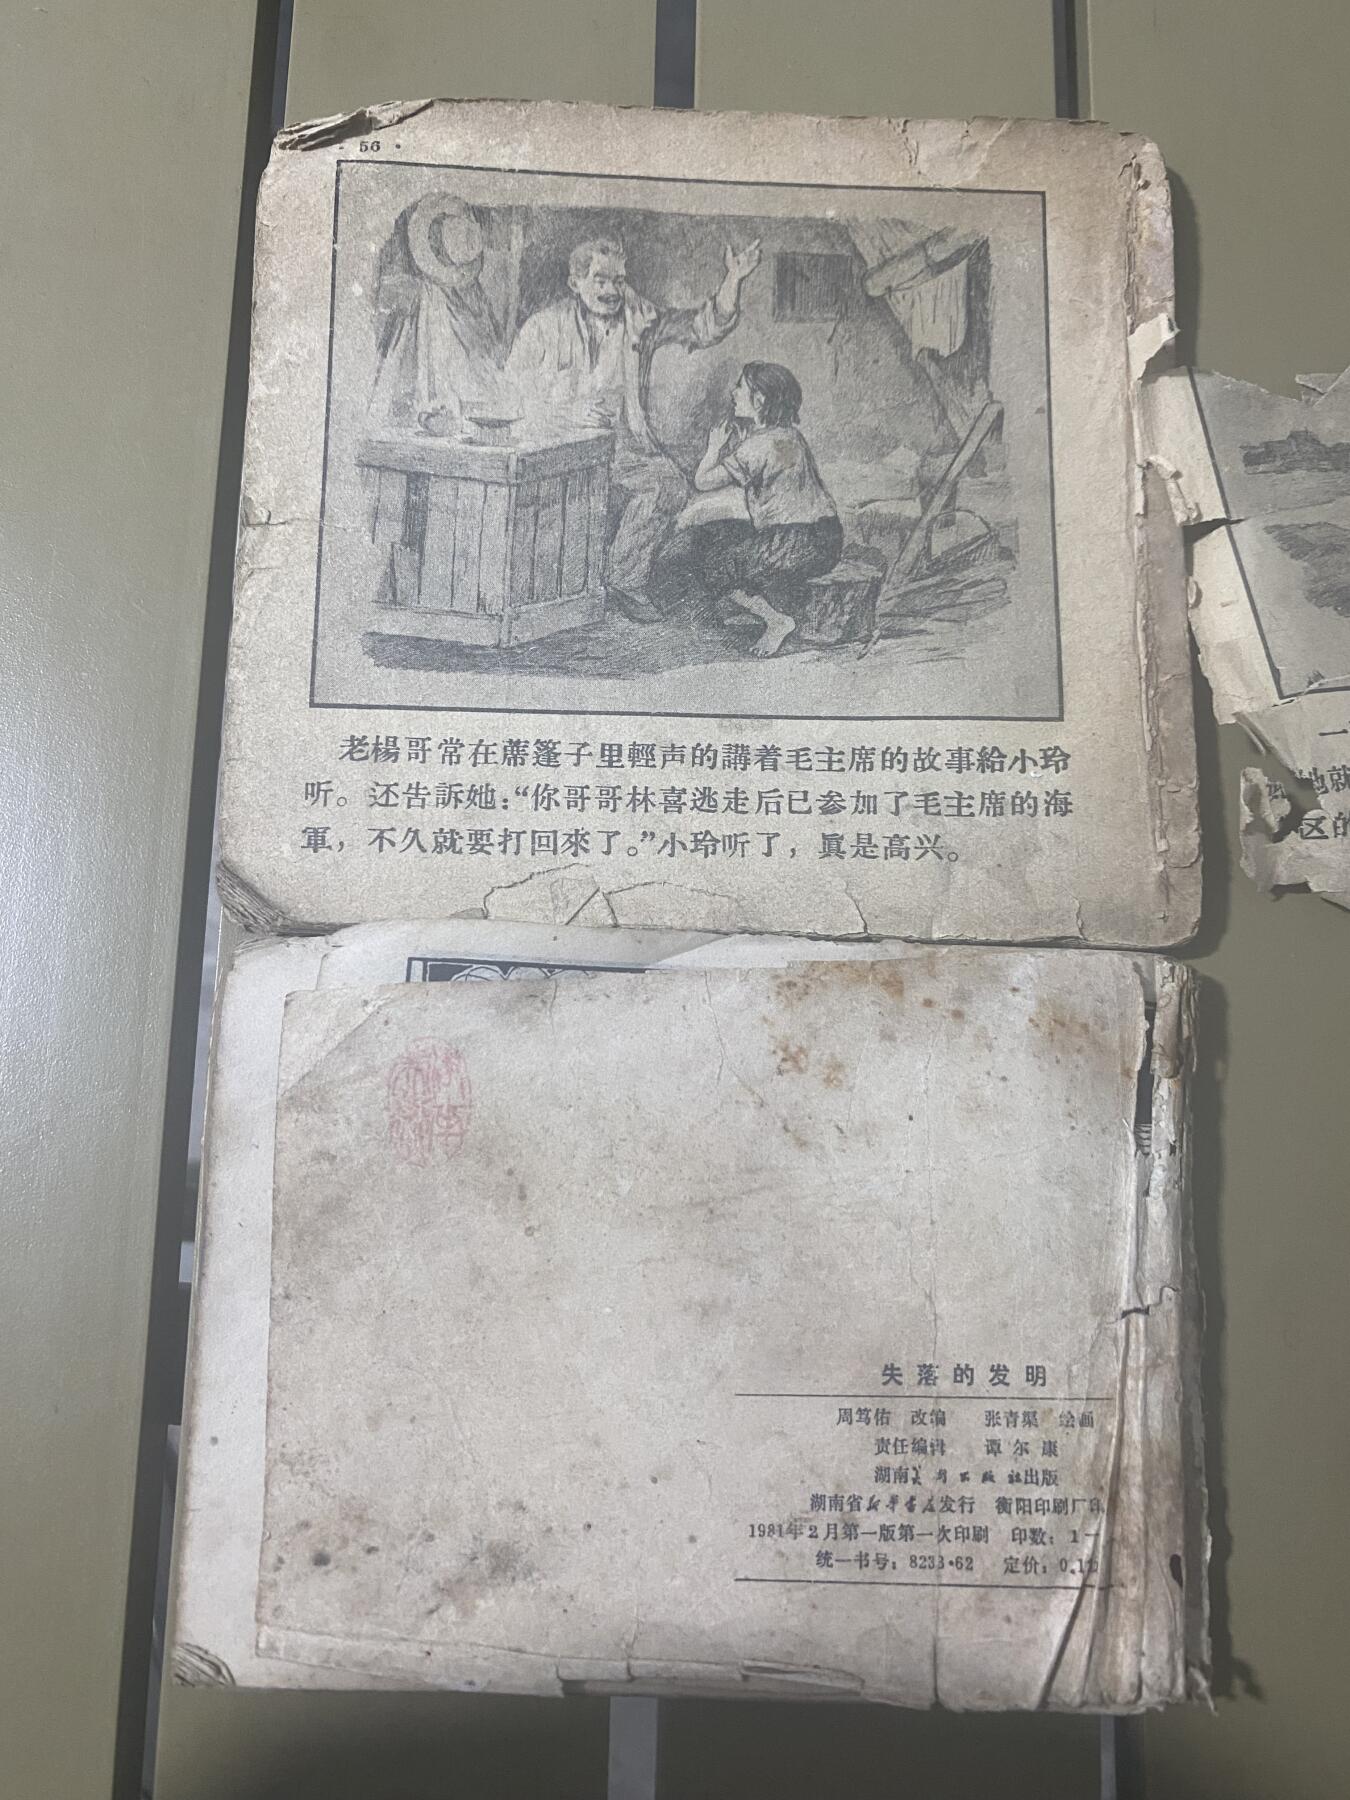 · 56 ·
老楊哥常在蓆篷子里輕声的講着毛主席的故事給小玲
听。还告訴她：“你哥哥林喜逃走后已参加了毛主席的海
軍，不久就要打回來了。”小玲听了，眞是高兴。
一
她就
区的
失落的发明
周笃佑 改编 张青渠 绘画
责任编辑 谭尔康
湖南美术出版社出版
湖南省新华书店发行 衡阳印刷厂印
1981年2月第一版第一次印刷 印数：1一
统一书号：8233·62 定价：0.1